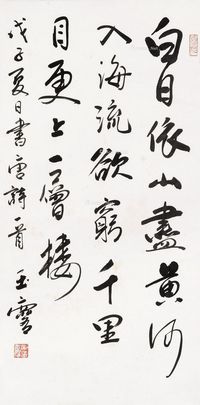 白日依山盡黃河
入海流欲窮千里
目更上一層樓
戊子夏日書唐詩一首 玉